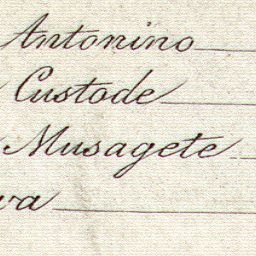 Antonino
Custode
Musagete